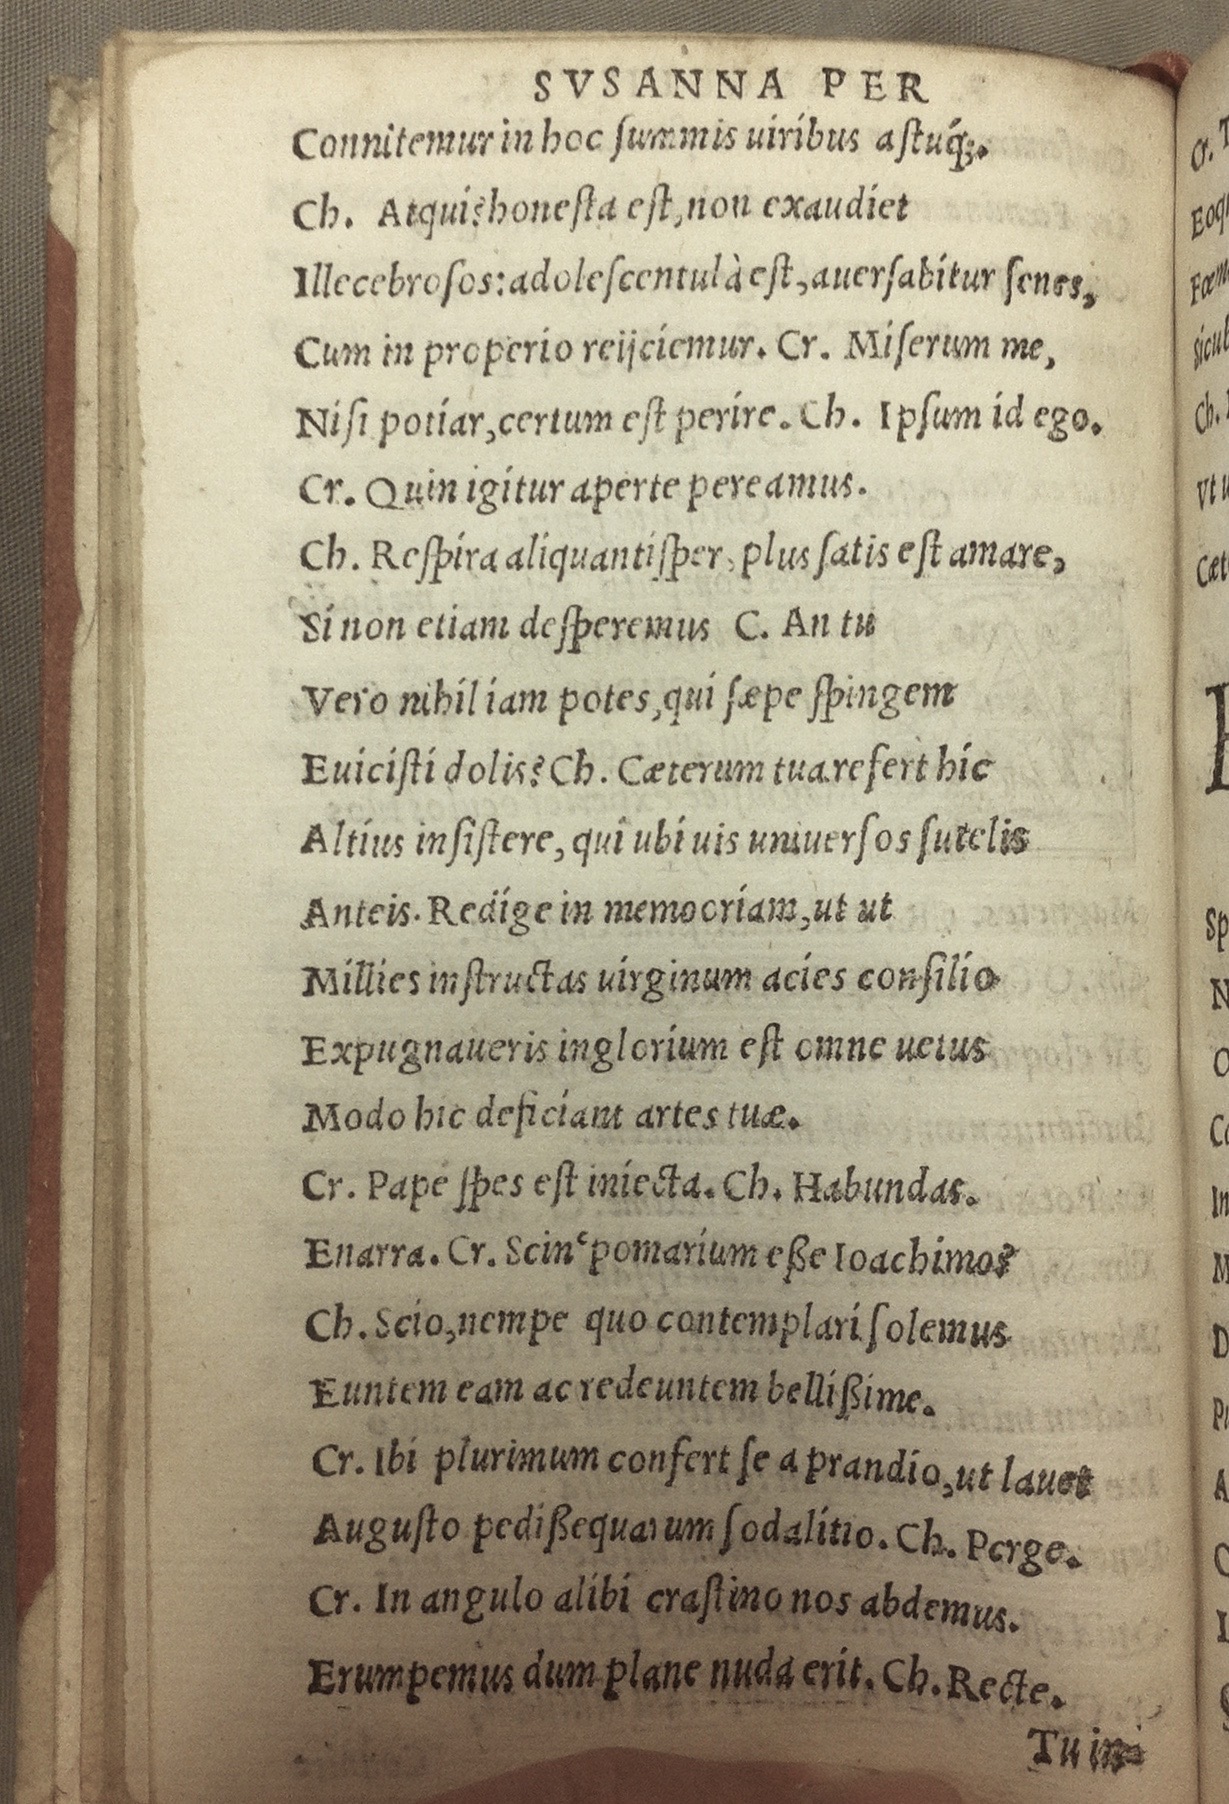 SVSANNA PER
Connitemur in hoc ſummis uiribus aſtuq́;.
Ch. Atqui? honeſta eſt, non exaudiet
Illecebroſos: adoleſcentulà eſt, auerſabitur ſenes,
Cum in properio reijciemur. Cr. Miſerum me,
Niſi potiar, certum eſt perire. Ch. Ipſum id ego.
Cr. Quin igitur aperte pereamus.
Ch. Reſpira aliquantiſper, plus ſatis eſt amare,
Si non etiam deſperemus C. An tu
Vero nihil iam potes, qui ſæpe ſpingem
Euiciſti dolis? Ch. Cæterum tua refert hic
Altius inſiſtere, qui ubi uis uniuerſos ſutelis
Anteis. Redige in memoriam, ut ut
Millies inſtructas uirginum acies conſilio
Expugnaueris inglorium eſt omne uetus
Modo hic deficiant artes tuæ.
Cr. Pape ſpes eſt iniecta. Ch. Habundas.
Enarra. Cr. Scin' pomarium eße Ioachimos?
Ch. Scio, nempe quo contemplari ſolemus
Euntem eam ac redeuntem bellißime.
Cr. Ibi plurimum confert ſe a prandio, ut lauet
Auguſto pedißequarum ſodalitio. Ch. Perge.
Cr. In angulo alibi craſtino nos abdemus.
Erumpemus dum plane nuda erit. Ch. Recte.
Tu in-
Cr.
Ch.
Vt u